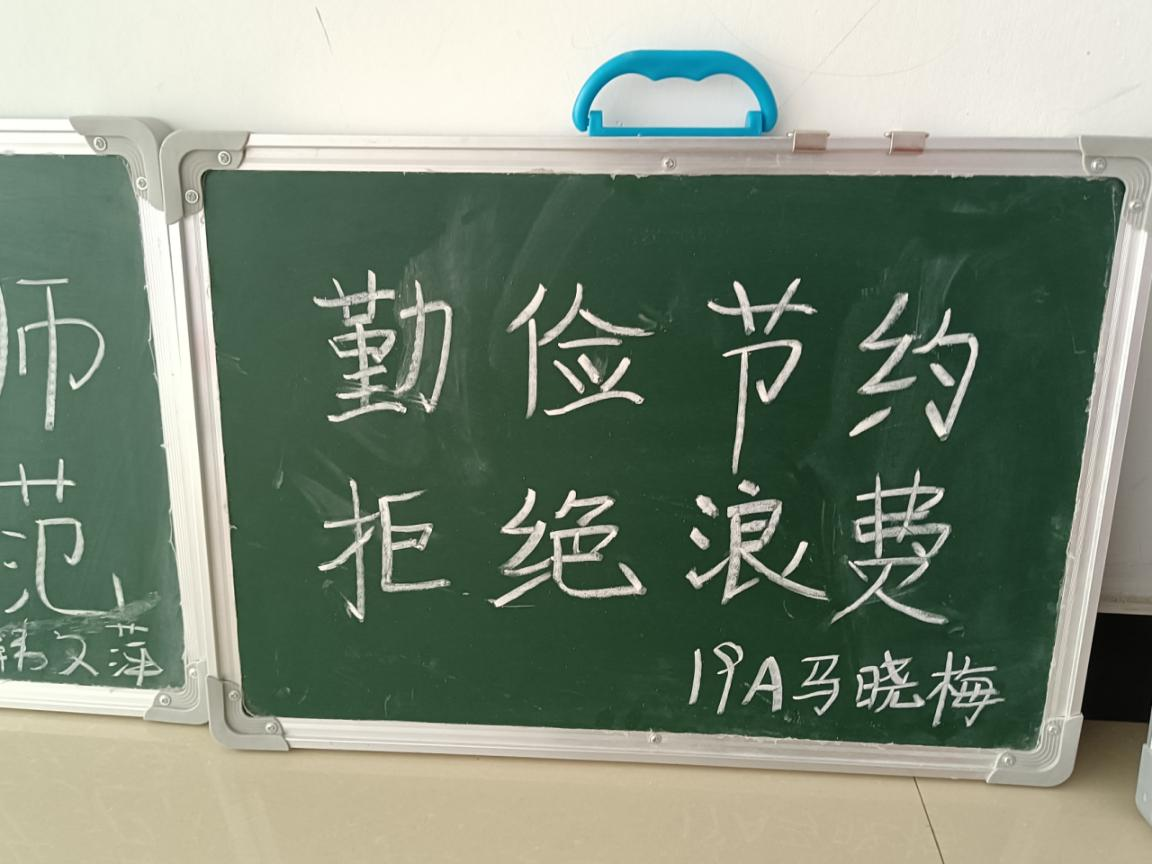 勤俭节约
拒绝浪费
19A马晓梅
师
范
韩文萍